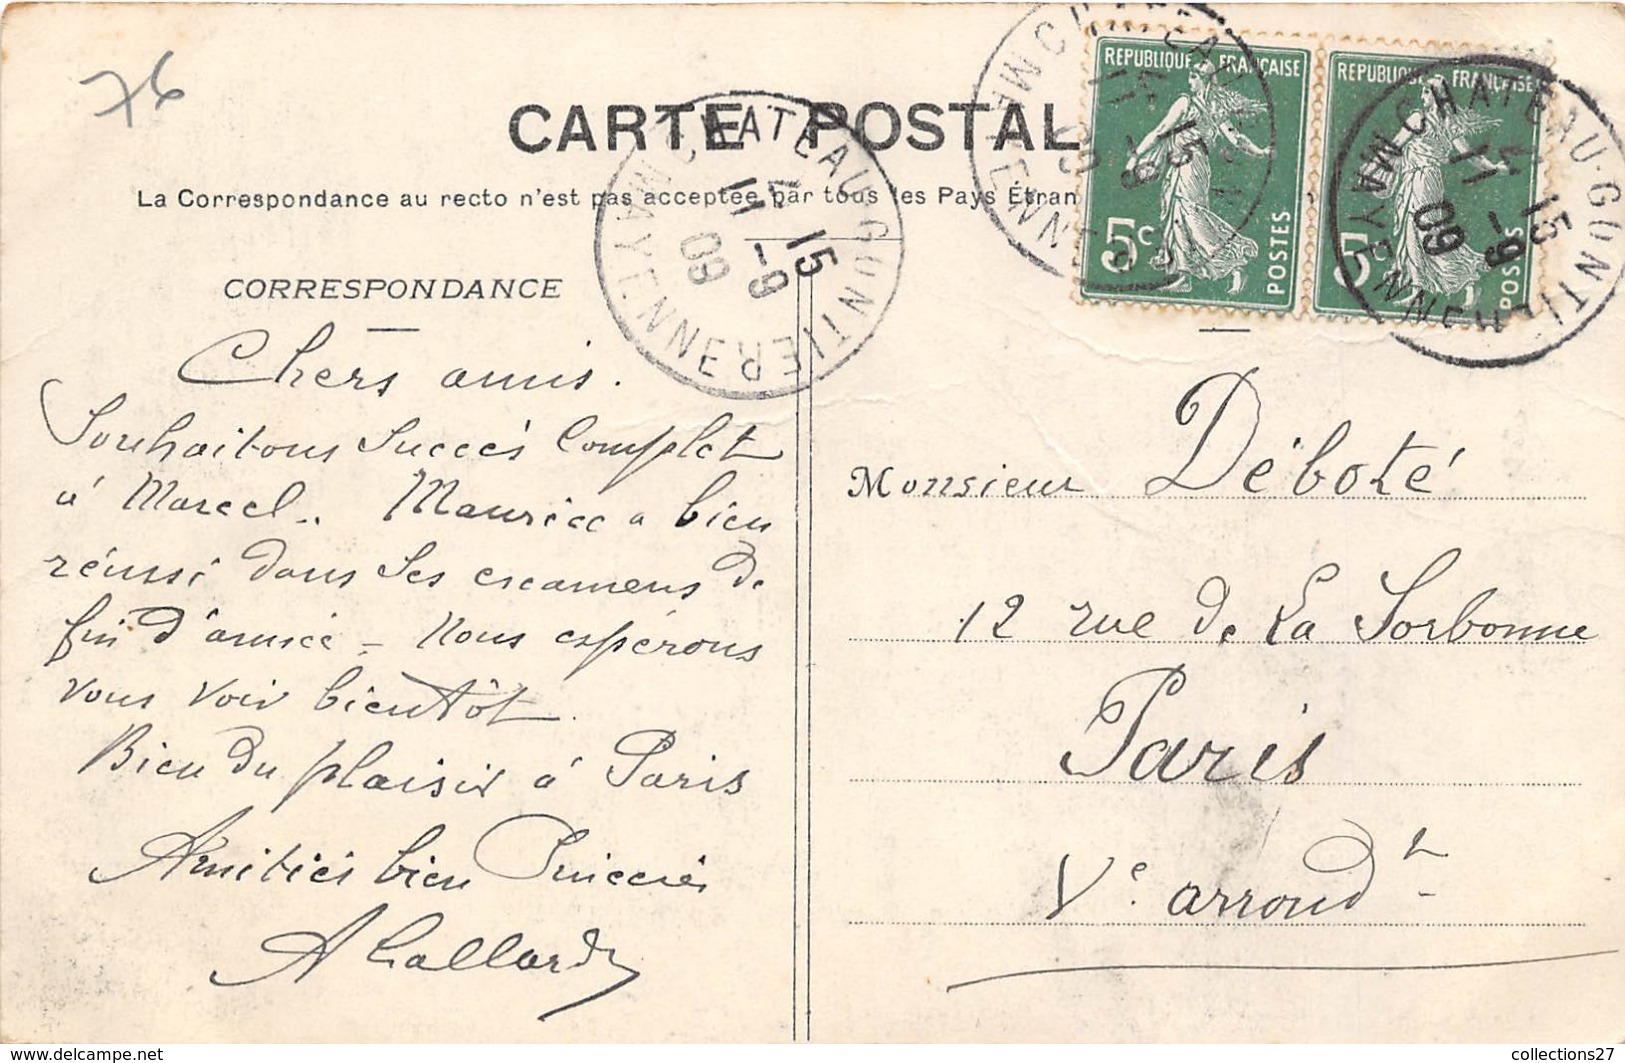 76
CARTE POSTAL
La Correspondance au recto n'est pas acceptée par tous les Pays Étran
REPUBLIQUE FRANÇAISE
5c POSTES
REPUBLIQUE FRANÇAISE
5 POSTES
CHATEAU-GONTIER
MAYENNE
15
11 -9
09
CHATEAU-GONTIER
MAYENNE
15
11 -9
09
CHATEAU-GONTIER
MAYENNE
15
11 -9
09
CORRESPONDANCE
Chers amis.
Souhaitons Succès Complet
à Marcel.. Maurice a bien
réussi dans Ses examens de
fin d'année - Nous espérons
vous voir bientôt.
Bien du plaisir à Paris
Amitiés bien Sincères
Monsieur Déboté
12 rue de La Sorbonne
Paris
Ve. arrondt
www.delcampe.net
collections27